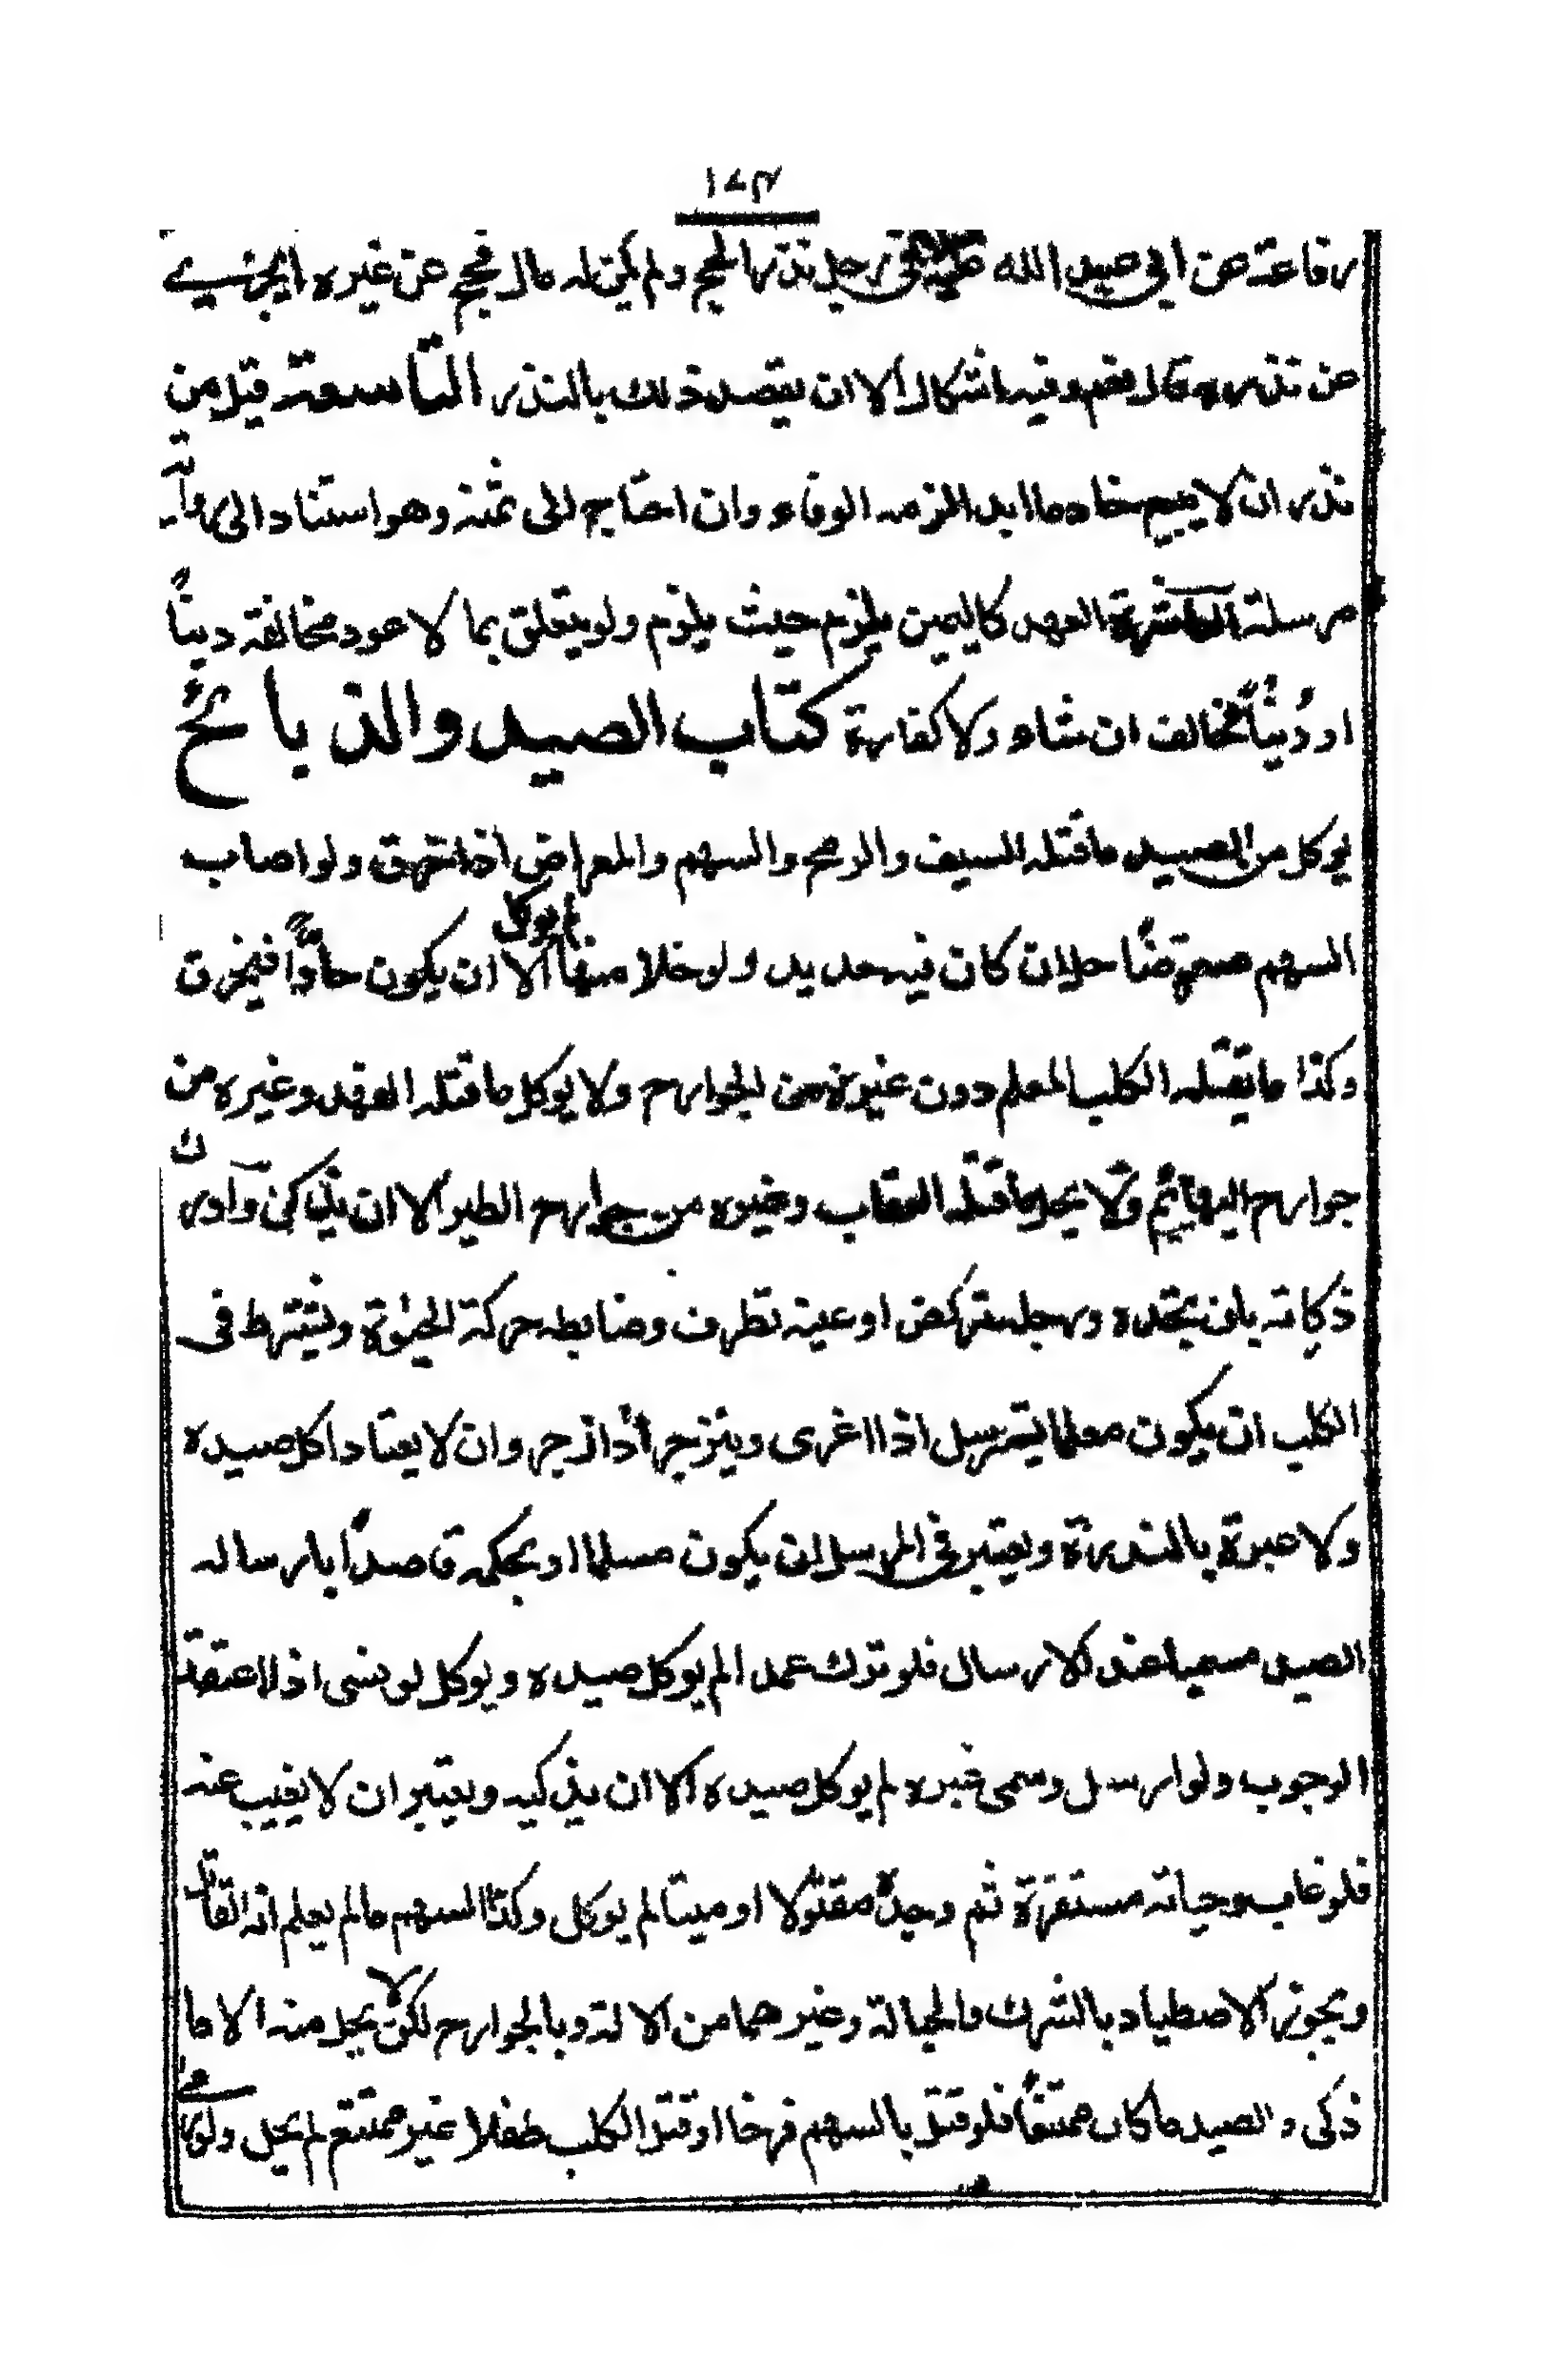 ١٧٣
رفاعة عن ابي عبد الله في رجل نذر الحج ولم يكن له مال فحج عن غيره ايجزي
عن نذره قال نعم وفيه اشكال الا ان يقصد ذلك بالنذر التاسعة قيل من
نذر ان لا يبيع خادما ابدا لزمه الوفاء وان احتاج الى ثمنه وهو استناد الى رواية
مرسلة العاشرة العهد كاليمين يلزم حيث يلزم ولو تعلق بما لا عود مخالفته دينًا
او دُنيًا خالف ان شاء ولا كفارة كتاب الصيد والذبائح
يوكل من الصيد ما قتله السيف والرمح والسهم والمعراض اذا خرق ولو اصاب
السهم معترضًا حل ان كان فيه حديد ولو خلا منها لم يوكل الا ان يكون حادًّا فيخرق
وكذا ما يقتله الكلب المعلم دون غيره من الجوارح ولا يوكل ما قتله الفهد وغيره من
جوارح البهائم ولا يحل ما قتله العقاب وغيره من جوارح الطير الا ان يذكى وادراك
ذكاته بان يجده ورجله تركض او عينه تطرف وضابطه حركة الحيوة ويشترط فى
الكلب ان يكون معلما يسترسل اذا اغرى وينزجر اذا زجر وان لا يعتاد اكل صيده
ولا عبرة بالندرة ويعتبر في المرسل ان يكون مسلما او بحكمه قاصدًا بارساله
الصيد مسميا عند الارسال فلو ترك عمدا لم يوكل صيده ويوكل لو نسى اذا اعتقد
الوجوب ولو ارسل وسمى غيره لم يوكل صيده الا ان يذكيه ويعتبر ان لا يغيب عنه
فلو غاب وحياته مستقرة ثم وجده مقتولا او ميتا لم يوكل وكذا السهم ما لم يعلم انه القاتل
ويجوز الاصطياد بالشرك والحبالة وغيرهما من الالة وبالجوارح لكن لا يحل منه الا ما
ذكى والصيد ما كان ممتنعًا فلو قتل بالسهم فرخا او قتل الكلب طفلا غير ممتنع لم يحل ولو